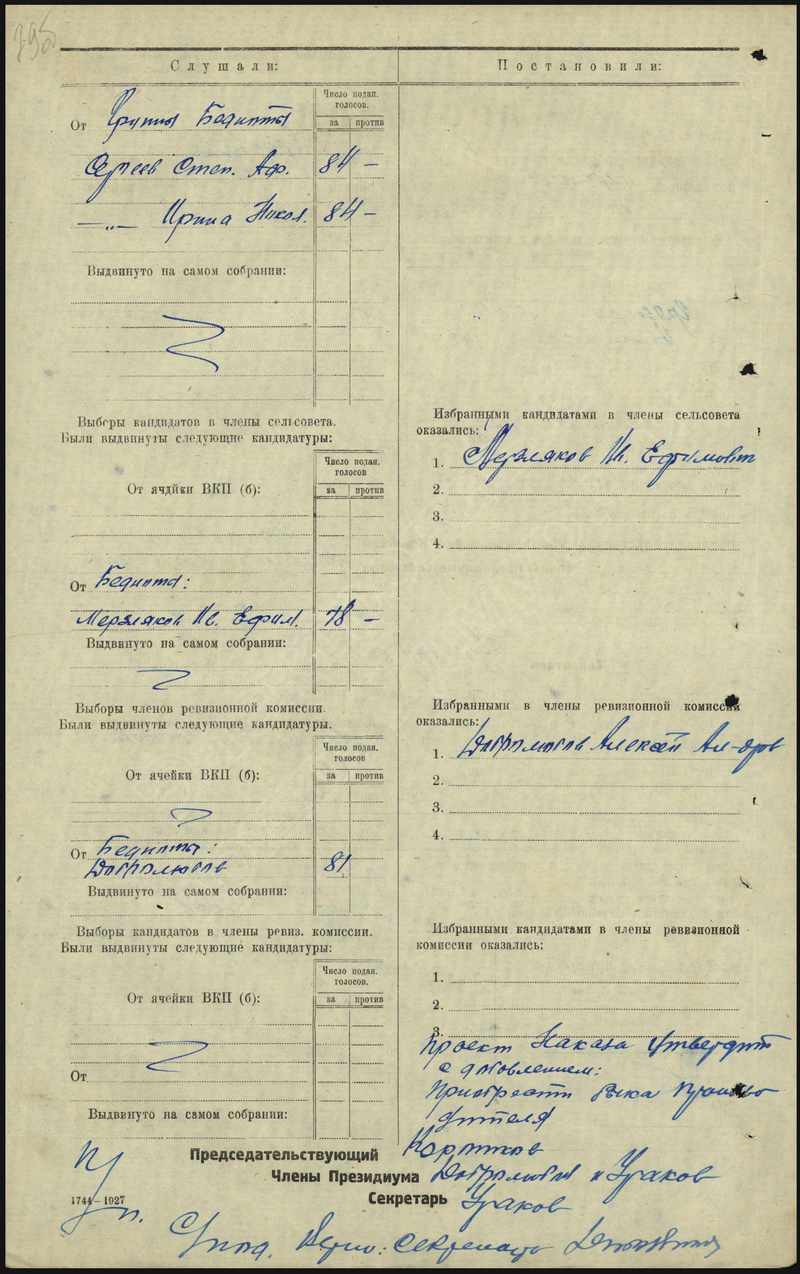 395
Слушали:
Постановили:
Число подан. голосов.
за против
От Группы Бедноты
Сергеев Степ. Аф. 84 —
—„— Ирина Никол. 84 —
Выдвинуто на самом собрании:
Выборы кандидатов в члены сельсовета.
Были выдвинуты следующие кандидатуры:
Число подан. голосов
за против
От ячдйки ВКП (б):
От Бедноты:
Мерзляков Ив. Ефим. 78 —
Выдвинуто на самом собрании:
Избранными кандидатами в члены сельсовета
оказались:
1. Мерзляков Ив. Ефимович
2.
3.
4.
Выборы членов ревизионной комиссии.
Были выдвинуты следующие кандидатуры.
Число подан. голосов
за против
От ячейки ВКП (б):
От Бедноты:
Добролюбов 81
Выдвинуто на самом собрании:
Избранными в члены ревизионной комиссии
оказались:
1. Добролюбов Алексей Ал-др
2.
3.
4.
Выборы кандидатов в члены ревиз. комиссии.
Были выдвинуты следующие кандидатуры:
Число подан. голосов.
за против
От ячейки ВКП (б):
От
Выдвинуто на самом собрании:
Избранными кандидатами в члены ревизионной
комиссии оказались:
1.
2.
3.
Проект Наказа Утвердить
с добовлением:
Приобрести быка
Председательствующий
Члены Президиума Добролюбов и Ураков
Секретарь Ураков
1744—1927
п.
Верно: секретарь